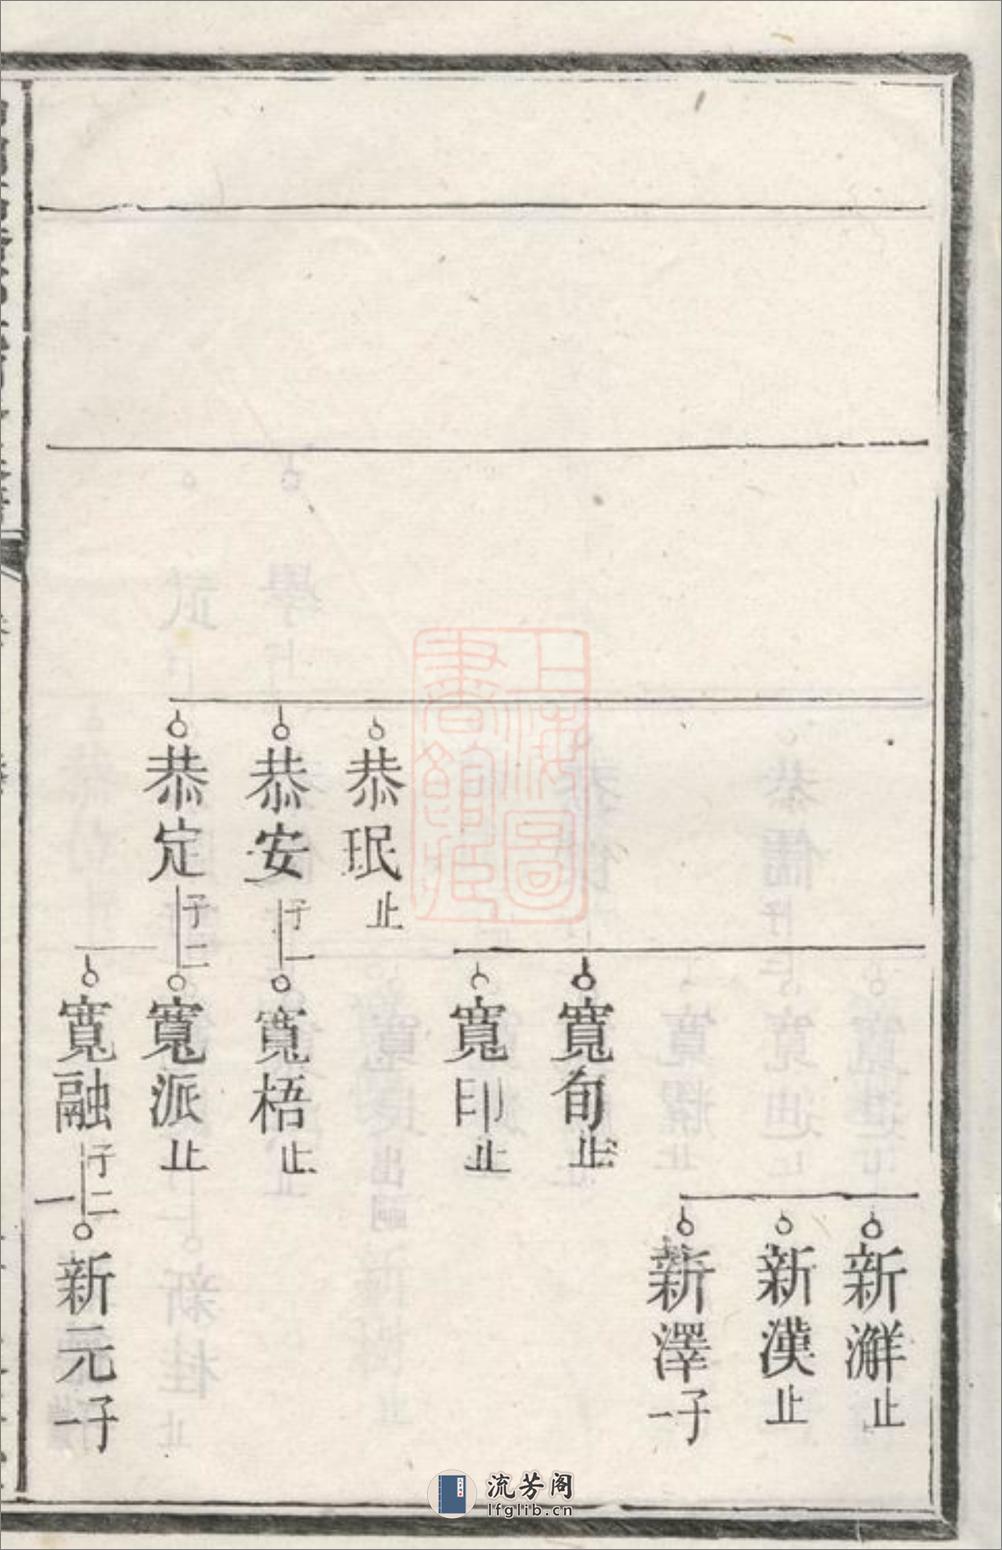 新澥止
新漢止
新澤子一
寬旬止
寬印止
恭珉止
恭安子一
寬梧止
恭定子二
寬派止
寬融子二
新元子一
上海圖書館藏
流芳阁
lfglib.cn